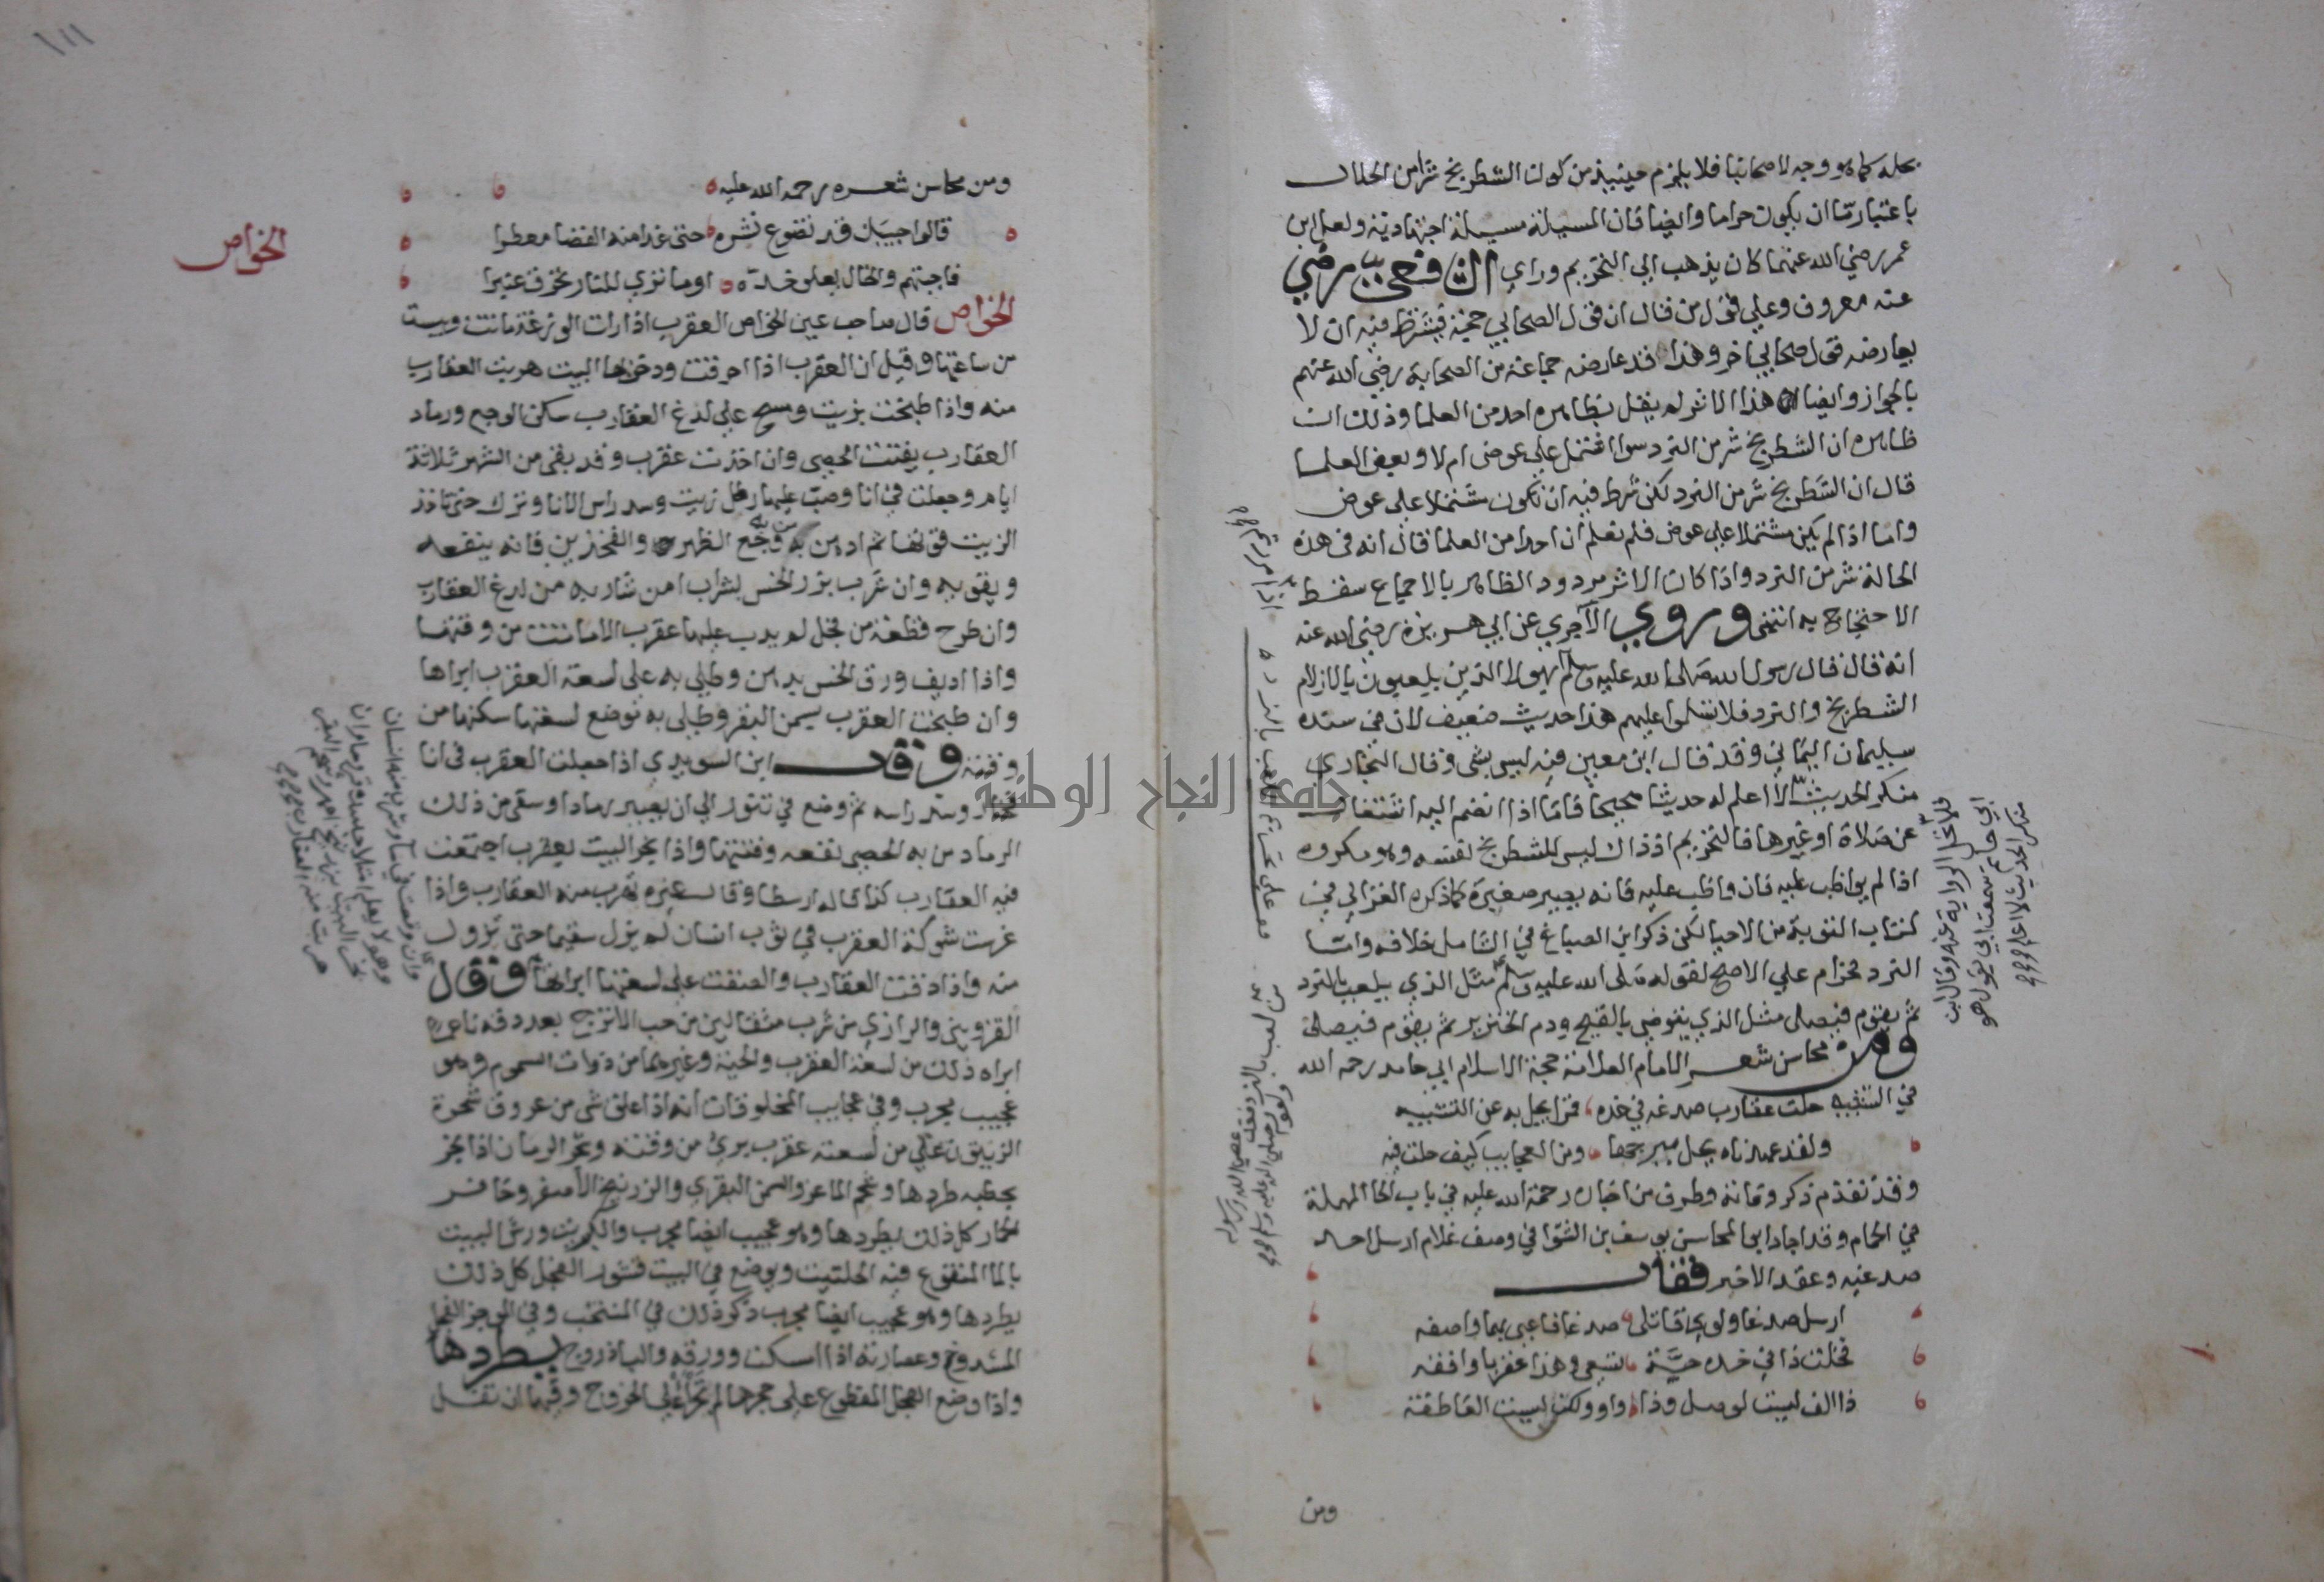 بحله كما هو وجه لاصحابنا فلا يلزم حينيذ من كون الشطرنج شرا من الحلال
باعتبار ما ان يكون حراما وايضا فان المسيلة مسيلة اجتهادية ولعل ابن
عمر رضي الله عنهما كان يذهب الي التحريم وراي الشافعي رضي
عنه معروف وعلي قول من قال ان قول الصحابي حجة فيشترط فيه ان لا
يعارضه قول صحابي اخر وهذا قد عارضه جماعة من الصحابة رضي الله عنهم
بالجواز وايضا هذا الاثر لم يقل بظاهره احد من العلما وذلك ان
ظاهره ان الشطرنج شر من النرد سوا اشتمل علي عوض ام لا وبعض العلما
قال ان الشطرنج شر من النرد لكن شرط فيه ان تكون مشتملا علي عوض
واما اذا لم يكن مشتملا علي عوض فلم نعلم ان احدا من العلما قال انه في هذه
الحالة شر من النرد واذا كان الاثر مردود الظاهر بالاجماع سقط
الاحتجاج به انتهى وروي الآجري عن ابي هريرة رضي الله عنه
انه قال قال رسول الله صلى الله عليه وسلم بهولا الذين يلعبون بالازلام
الشطرنج والنرد فلا تسلموا عليهم هذا حديث ضعيف لان في سنده
سليمان اليماني وقد قال ابن معين فيه ليس بشى وقال البخاري
منكر الحديث لا اعلم له حديثا صحيحا فاما اذا انضم اليه اشتغال
عن صلاة او غيرها فالتحريم اذ ذاك ليس للشطرنج لنفسه وهو مكروه
اذا لم يواظب عليه فان واظب عليه فانه يصير صغيرة كما ذكره الغزالي في
كتاب التوبة من الاحيا لكن ذكر ابن الصباغ في الشامل خلافه واما
النرد فحرام علي الاصح لقوله صلى الله عليه وسلم مثل الذي يلعب بالنرد
ثم يقوم فيصلى مثل الذي يتوضي بالقيح ودم الخنزير ثم يقوم فيصلى
ومن محاسن شعر الامام العلامة حجة الاسلام ابي حامد رحمه الله
في التشبيه حلت عقارب صدغه في خده قمرا يجل به عن التشبيه
ولقد عهدناه يحل ببرجها ومن العجايب كيف حلت فيه
وقد تقدم ذكر وفاته وطرف من اخبار رحمة الله عليه في باب الحا المهملة
في الحمام وقد اجاد ابو المحاسن يوسف بن الشوا في وصف غلام ارسل احد
صدغيه وعقد الاخر فقال
ارسل صدغا ولوى قاتلى صدغا فاعيى بهما واصفه
فخلت ذا في خده حية تسعى وهذا عقربا واقفه
ذا الف ليست لوصل وذا واو ولكن ليست العاطفة
ومن
فلا تحل الرواية عنه وقال ابن
ابي حاتم سمعت ابي يقول هو
منكر الحديث لا اعلم
ومن محاسن شعره رحمه الله عليه
قالوا حبيبك قد تضوع نشره حتى غدا منه الفضا معطرا
فاجبتهم والخال يعلو خده اوما تري للنار تحرق عنبرا
الخواص
الخواص قال صاحب عين الخواص العقرب اذا رات الوزغة ماتت ويبست
من ساعتها وقيل ان العقرب اذا احرقت ودخن بها البيت هربت العقارب
منه واذا طبخت بزيت ومسح علي لدغ العقارب سكن الوجع ورماد
العقارب يفتت الحصى وان اخذت عقرب وقد بقى من الشهر ثلاثة
ايام وجعلت في انا وصب عليها رطل زيت وسد راس الانا وترك حتى تاخذ
الزيت قوتها ثم ادهن به من به وجع الظهر والفخذين فانه ينفعه
ويقويه وان شرب بزر الخس بشراب امن شاربه من لدغ العقارب
وان طرح قطعة من فجل لم يدب عليها عقرب الا ماتت من وقتها
واذا اديف ورق الخس بدهن وطلى به على لسعة العقرب ابراها
وان طبخت العقرب بسمن البقر وطلى به موضع لسعتها سكنها من
وقته وقال ابن السويدي اذا جعلت العقرب في انا
فخار وسد راسه ثم وضع في تنور الي ان يصير رمادا وسقى من ذلك
الرماد من به الحصى نفعه وفتتها واذا بخر البيت بعقرب اجتمعت
فيه العقارب كذا قاله ارسطا وقال غيره تهرب منه العقارب واذا
غرست شوكة العقرب في ثوب انسان لم يزل سقيما حتى تزول
منه واذا دقت العقارب والصقت علي لسعتها ابراتها وقال
القزويني والرازي من شرب مثقالين من حب الاترج بعد دقه ناعما
ابراه ذلك من لسعة العقرب والحية وغيرهما من ذوات السموم وهو
عجيب مجرب وفي عجايب المخلوقات انه اذا علق شى من عروق شجرة
الزيتون علي من لسعته عقرب بري من وقتنه وشجر الرمان اذا بخر
بحطبه طردها وشحم الماعز والسمن البقري والزرنيخ الأصفر وحافر
الحمار كل ذلك يطردها وهو عجيب ايضا مجرب والكبريت ورش البيت
بالما المنقوع فيه الحلتيت ويوضع في البيت قشور الفجل كل ذلك
يطردها وهو عجيب ايضا مجرب ذكر ذلك في المنتخب وفي الموجز الفجل
المشدوخ وعصارته اذا امسكت وورقه والباذروج يطردها
واذا وضع الفجل المقطوع علي جحرها لم تجترا علي الخروج وقيها ان تقتل